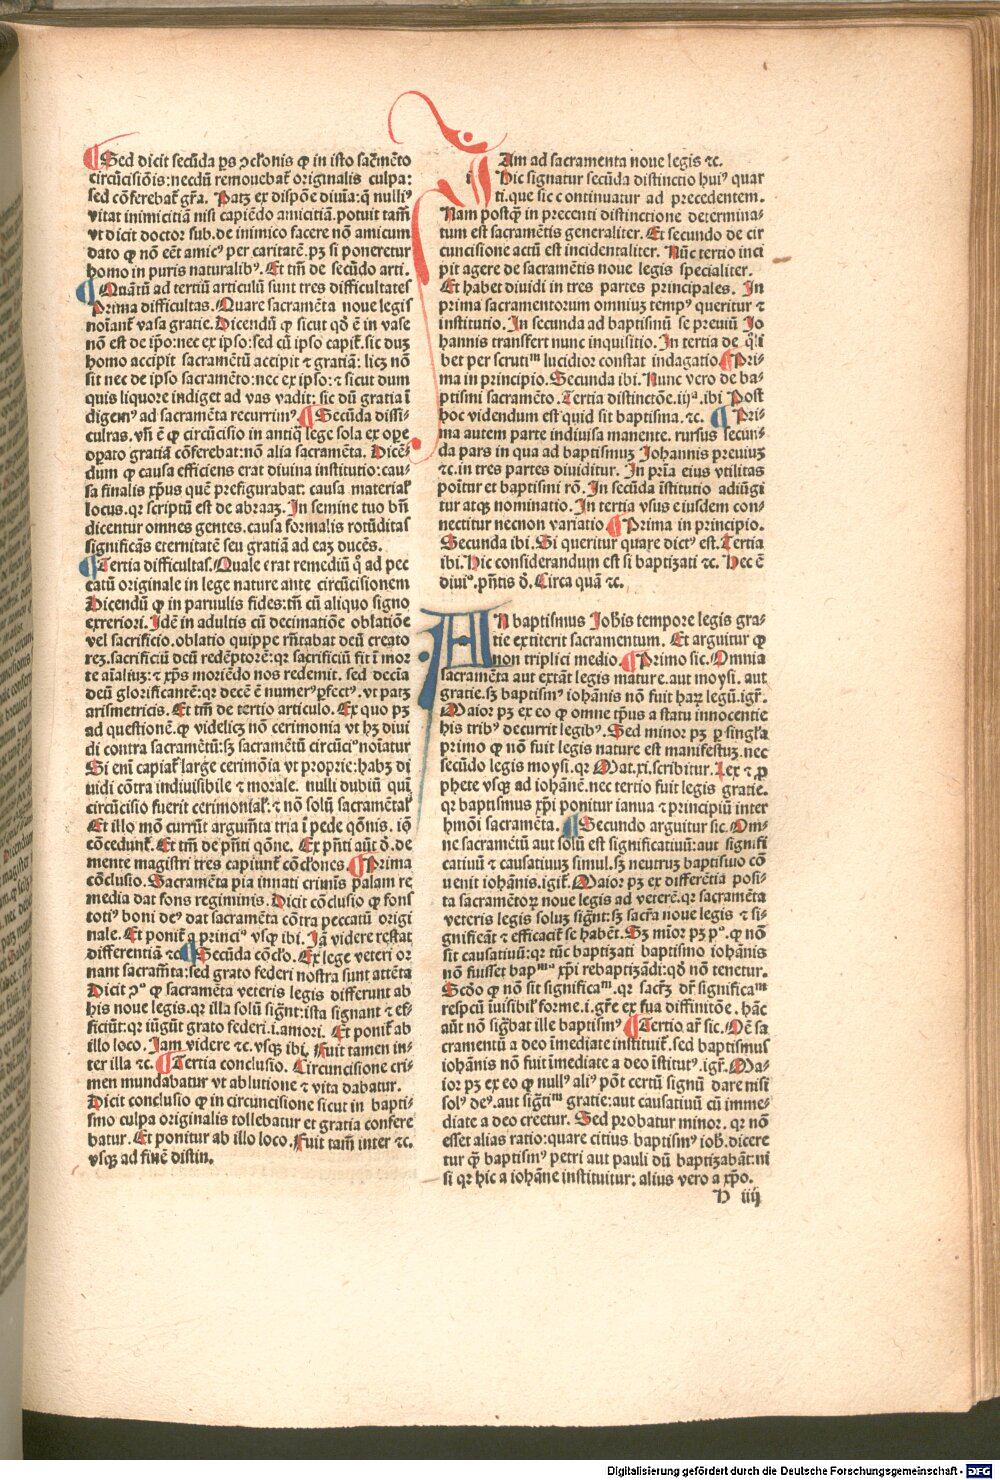 ¶ Sed dicit secūda ps ↄclonis ꝙ in isto sac̄mēto
circūcisiōis: necdū remouebat᷑ originalis culpa:
sed cōferebat᷑ gr̄a. Patꝫ ex dispōe diuia: q̄ nulliꝰ
vitat inimicitiā nisi capiēdo amicitiā. potuit tam̄
vt dicit doctor sub. de inimico facere nō amicum
dato ꝙ nō eēt amicꝰ per caritatē. pꝫ si poneretur
homo in puris naturalibꝰ. Et tm̄ de secūdo arti.
¶ Quātū ad tertiū articulū sunt tres difficultates
Prima difficultas. Quare sacramēta noue legis
noīant᷑ vasa gratie. Dicendū ꝙ sicut qd̄ ē in vase
nō est de ip̄o: nec ex ipso: sed cū ipso capit᷑. sic duꝫ
homo accipit sacramētū accipit ⁊ gratiā: licꝫ nō
sit nec de ipso sacramēto: nec ex ipso: ⁊ sicut dum
quis liquore indiget ad vas vadit: sic dū gratia ī
digemꝰ ad sacramēta recurrimꝰ. ¶ Secūda diffi-
cultas. vn̄ ē ꝙ circūcisio in antiq̄ lege sola ex oꝑe
oꝑato gratiā cōferebat: nō alia sacramēta. Dicē-
dum ꝙ causa efficiens erat diuina institutio: cau-
sa finalis xp̄us quē prefigurabat: causa material᷑
locus. qr scriptū est de abraaꝫ. In semine tuo bn̄
dicentur omnes gentes. causa formalis rotūditas
significās eternitatē seu gratiā ad eaꝫ ducēs.
¶ Tertia difficultas. Quale erat remediū q̄ ad pec
catū originale in lege nature ante circūcisionem
Dicendū ꝙ in paruulis fides: tn̄ cū aliquo signo
exreriori. Idē in adultis cū decimatiōe oblatiōe
vel sacrificio. oblatio quippe rn̄tabat deū creato
reꝫ. sacrificiū deū redēptorē: qr sacrificiū fit ī mor
te aīaliuꝫ: ⁊ xp̄s moriēdo nos redemit. sed decia
deū glorificantē: qr decē ē numerꝰ ꝑfectꝰ. vt patꝫ
arismetricis. Et tm̄ de tertio articulo. Ex quo pꝫ
ad questionē. ꝙ videlicꝫ nō cerimonia vt hꝫ diui
di contra sacramētū: sꝫ sacramētū circūciꝰ noīatur
Si enī capiat᷑ large cerimōia vt proprie: habꝫ di
uidi cōtra indiuisibile ⁊ morale. nulli dubiū quī
circūcisio fuerit cerimonial᷑: ⁊ nō solū sacramētal᷑
Et illo mō currūt argum̄ta tria ī pede qōnis. iō
cōcedunt᷑. Et tm̄ de pn̄ti qōne. Ex pn̄ti aūt d̄. de
mente magistri tres capiunt᷑ cōclones. ¶ Prima
cōclusio. Sacramēta pia innati crimis palam re
media dat fons regiminis. Dicit cōclusio ꝙ fons
totiꝰ boni deꝰ dat sacramēta cōtra peccatū origi
nale. Et ponit᷑ a princiᵒ vsqꝫ ibi. Iā videre restat
differentiā ⁊c. ¶ Secūda cōclo. Ex lege veteri or
nant sacram̄ta: sed grato federi nostra sunt attēta
Dicit ↄᵒ ꝙ sacramēta veteris legis differunt ab
his noue legis. qr illa solū sign̄t: ista signant ⁊ ef-
ficiūt: qr iūgūt grato federi. i. amori. Et ponit᷑ ab
illo loco. Iam videre ⁊c. vsqꝫ ibi. Fuit tamen in-
ter illa ⁊c. ¶ Tertia conclusio. Circuncisione cri-
men mundabatur vt ablutione ⁊ vita dabatur.
Dicit conclusio ꝙ in circuncisione sicut in bapti-
smo culpa originalis tollebatur et gratia confere
batur. Et ponitur ab illo loco. Fuit tam̄ inter ⁊c.
vsqꝫ ad finē distin.
IAm ad sacramenta noue legis ⁊c.
Hic signatur secūda distinctio huiꝰ quar
ti. que sic continuatur ad precedentem.
Nam postqꝫ in precenti distinctione determina-
tum est sacramētis generaliter. Et secundo de cir
cuncisione actū est incidentaliter. Nūc tertio inci
pit agere de sacramētis noue legis specialiter.
Et habet diuidi in tres partes principales. In
prima sacramentorum omniuꝫ tempꝰ queritur ⁊
institutio. In secunda ad baptismū se preuiū Io
hannis transfert nunc inquisitio. In tertia de q̄li
bet per scrutiᵐ lucidior constat indagatio. ¶ Pri-
ma in principio. Secunda ibi. Nunc vero de ba-
ptismi sacramēto. Tertia distinctōe. iijᵃ. ibi Post
hoc videndum est quid sit baptisma. ⁊c. ¶ Pri-
ma autem parte indiuisa manente. rursus secun-
da pars in qua ad baptismuꝫ Iohannis preuiuꝫ
⁊c. in tres partes diuiditur. In prīa eius vtilitas
poītur et baptismi rō. In secūda īstitutio adiūgi
tur atqꝫ nominatio. In tertia vsus eiusdem con-
nectitur necnon variatio. ¶ Prima in principio.
Secunda ibi. Si queritur quare dictꝰ est. Tertia
ibi. Hic considerandum est si baptizati ⁊c. Hec ē
diuiᵒ. pn̄tis d̄. Circa quā ⁊c.
AN baptismus Ioh̄is tempore legis gra-
tie extiterit sacramentum. Et arguitur ꝙ
non triplici medio. ¶ Primo sic. Omnia
sacramēta aut extāt legis nature. aut moysi. aut
gratie. sꝫ baptismꝰ iohānis nō fuit harꝫ legū. igr̄.
Maior pꝫ ex eo ꝙ omne tp̄us a statu innocentie
his tribꝰ decurrit legibꝰ. Sed minor pꝫ ꝑ singl̄a
primo ꝙ nō fuit legis nature est manifestuꝫ. nec
secūdo legis moysi. qr Mat. xi. scribitur. Lex ⁊ ꝓ
phete vsqꝫ ad iohānē. nec tertio fuit legis gratie.
qr baptismus xp̄i ponitur ianua ⁊ principiū inter
hm̄oi sacramēta. ¶ Secundo arguitur sic. Om-
ne sacramētū aut solū est significatiuū: aut signifi
catiuū ⁊ causatiuuꝫ simul. sꝫ neutruꝫ baptismo cō
uenit iohānis. igit᷑. Maior pꝫ ex differētia posi-
ta sacramētoꝝ noue legis ad veterē. qr sacramēta
veteris legis soluꝫ sign̄t: sꝫ sacr̄a noue legis ⁊ si-
gnificāt ⁊ efficacit᷑ se habēt. Sꝫ mīor pꝫ pᵒ. ꝙ nō
sit causatiuū: qr tūc baptizati baptismo iohānis
nō fuisset bapᵐᵒ xp̄i rebaptizādi: qd̄ nō tenetur.
Scd̄o ꝙ nō sit significaᵐ. qr sacr̄ꝫ dr̄ significaᵐ
respcū īuisibil᷑ forme. i. gr̄e ex sua diffinitōe. hāc
aūt nō siḡbat ille baptismꝰ ¶ Tertio ar̄ sic. Oē sa
cramentū a deo īmediate instituit᷑. sed baptismus
iohānis nō fuit īmediate a deo īstitutꝰ. igr̄. Ma-
ior pꝫ ex eo ꝙ nullꝰ aliꝰ pōt certū signū dare nisi
solꝰ deꝰ. aut siḡtiᵐ gratie: aut causatiuū cū imme-
diate a deo creetur. Sed probatur minor. qr nō
esset alias ratio: quare citius baptismꝰ ioh̄. dicere
tur qꝫ baptismꝰ petri aut pauli dū baptizabāt: ni
si qr hic a iohāne instituitur: alius vero a xp̄o.
D iiij
Digitalisierung gefördert durch die Deutsche Forschungsgemeinschaft - DFG